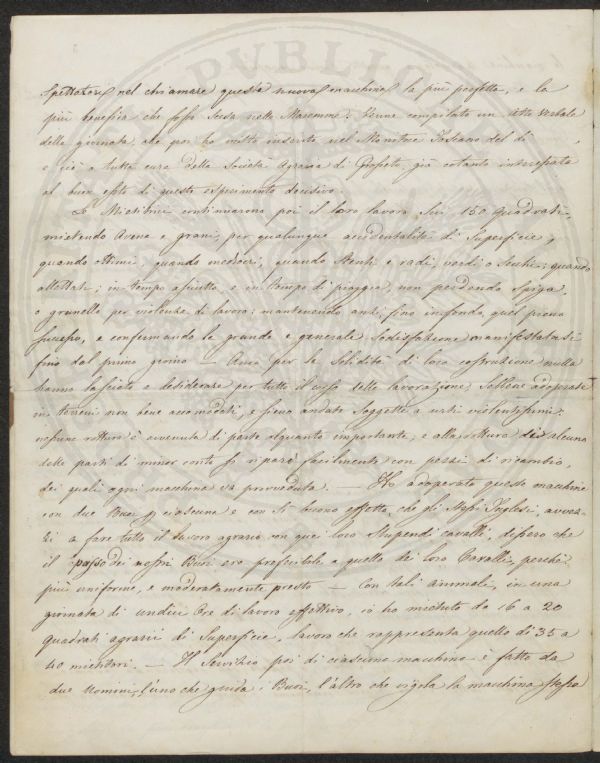 Spettatori nel chiamare questa nuova macchina la più perfetta, e la
più benefica che fosse scesa nelle Maremme. Venne compilato un Atto Verbale
della giornata, che poi ho visto inserito nel Monitore Toscano del dì
e ciò a tutta cura della Società Agraria di Grosseto, già cotanto interessata
al buon esito di questo esperimento decisivo.
Le Mietitrici continuarono poi il loro lavoro sui 150 quadrati,
mietendo Avene e grani, per qualunque accidentalità di Superficie,
quando ottimi, quando mediocri, quando stenti e radi, verdi o secchi; quando
allettati; in tempo asciutto, e in tempo di pioggia, non perdendo spiga,
o granello per violenza di lavoro; mantenendo anzi, fino in fondo, quel primo
successo, e confermando la grande e generale sodisfazione manifestatasi
fino dal primo giorno — Anco per la Solidità di loro costruzione nulla
hanno lasciato a desiderare per tutto il corso della lavorazione, sebbene adoperate
in terreni non bene accomodati, e sieno andate soggette a urti violentissimi.
nessuna rottura è avvenuta di parte alquanto importante, e alla rottura di alcuna
delle parti di minor conto si riparò facilmente con pezzi di ricambio,
dei quali ogni macchina va provveduta. — Ho adoperato queste macchine
con due Buoi p ciascuna e con sì buono effetto, che gli stessi Inglesi, avvez-
zi a fare tutto il lavoro agrario con quei loro stupendi cavalli, dissero che
il passo dei nostri Buoi era preferibile a quello dei loro Cavalli, perchè
più uniforme, e moderatamente presto — Con tali animali, in una
giornata di undici Ore di lavoro effettivo, si è mietuto da 16 a 20
quadrati agrarii di Superficie, lavoro che rappresenta quello di 35 a
40 mietitori. — Il Servizio poi di ciascuna macchina è fatto da
due Uomini, l'uno che guida i Buoi, l'altro che vigila la macchina stessa
PVBLIC